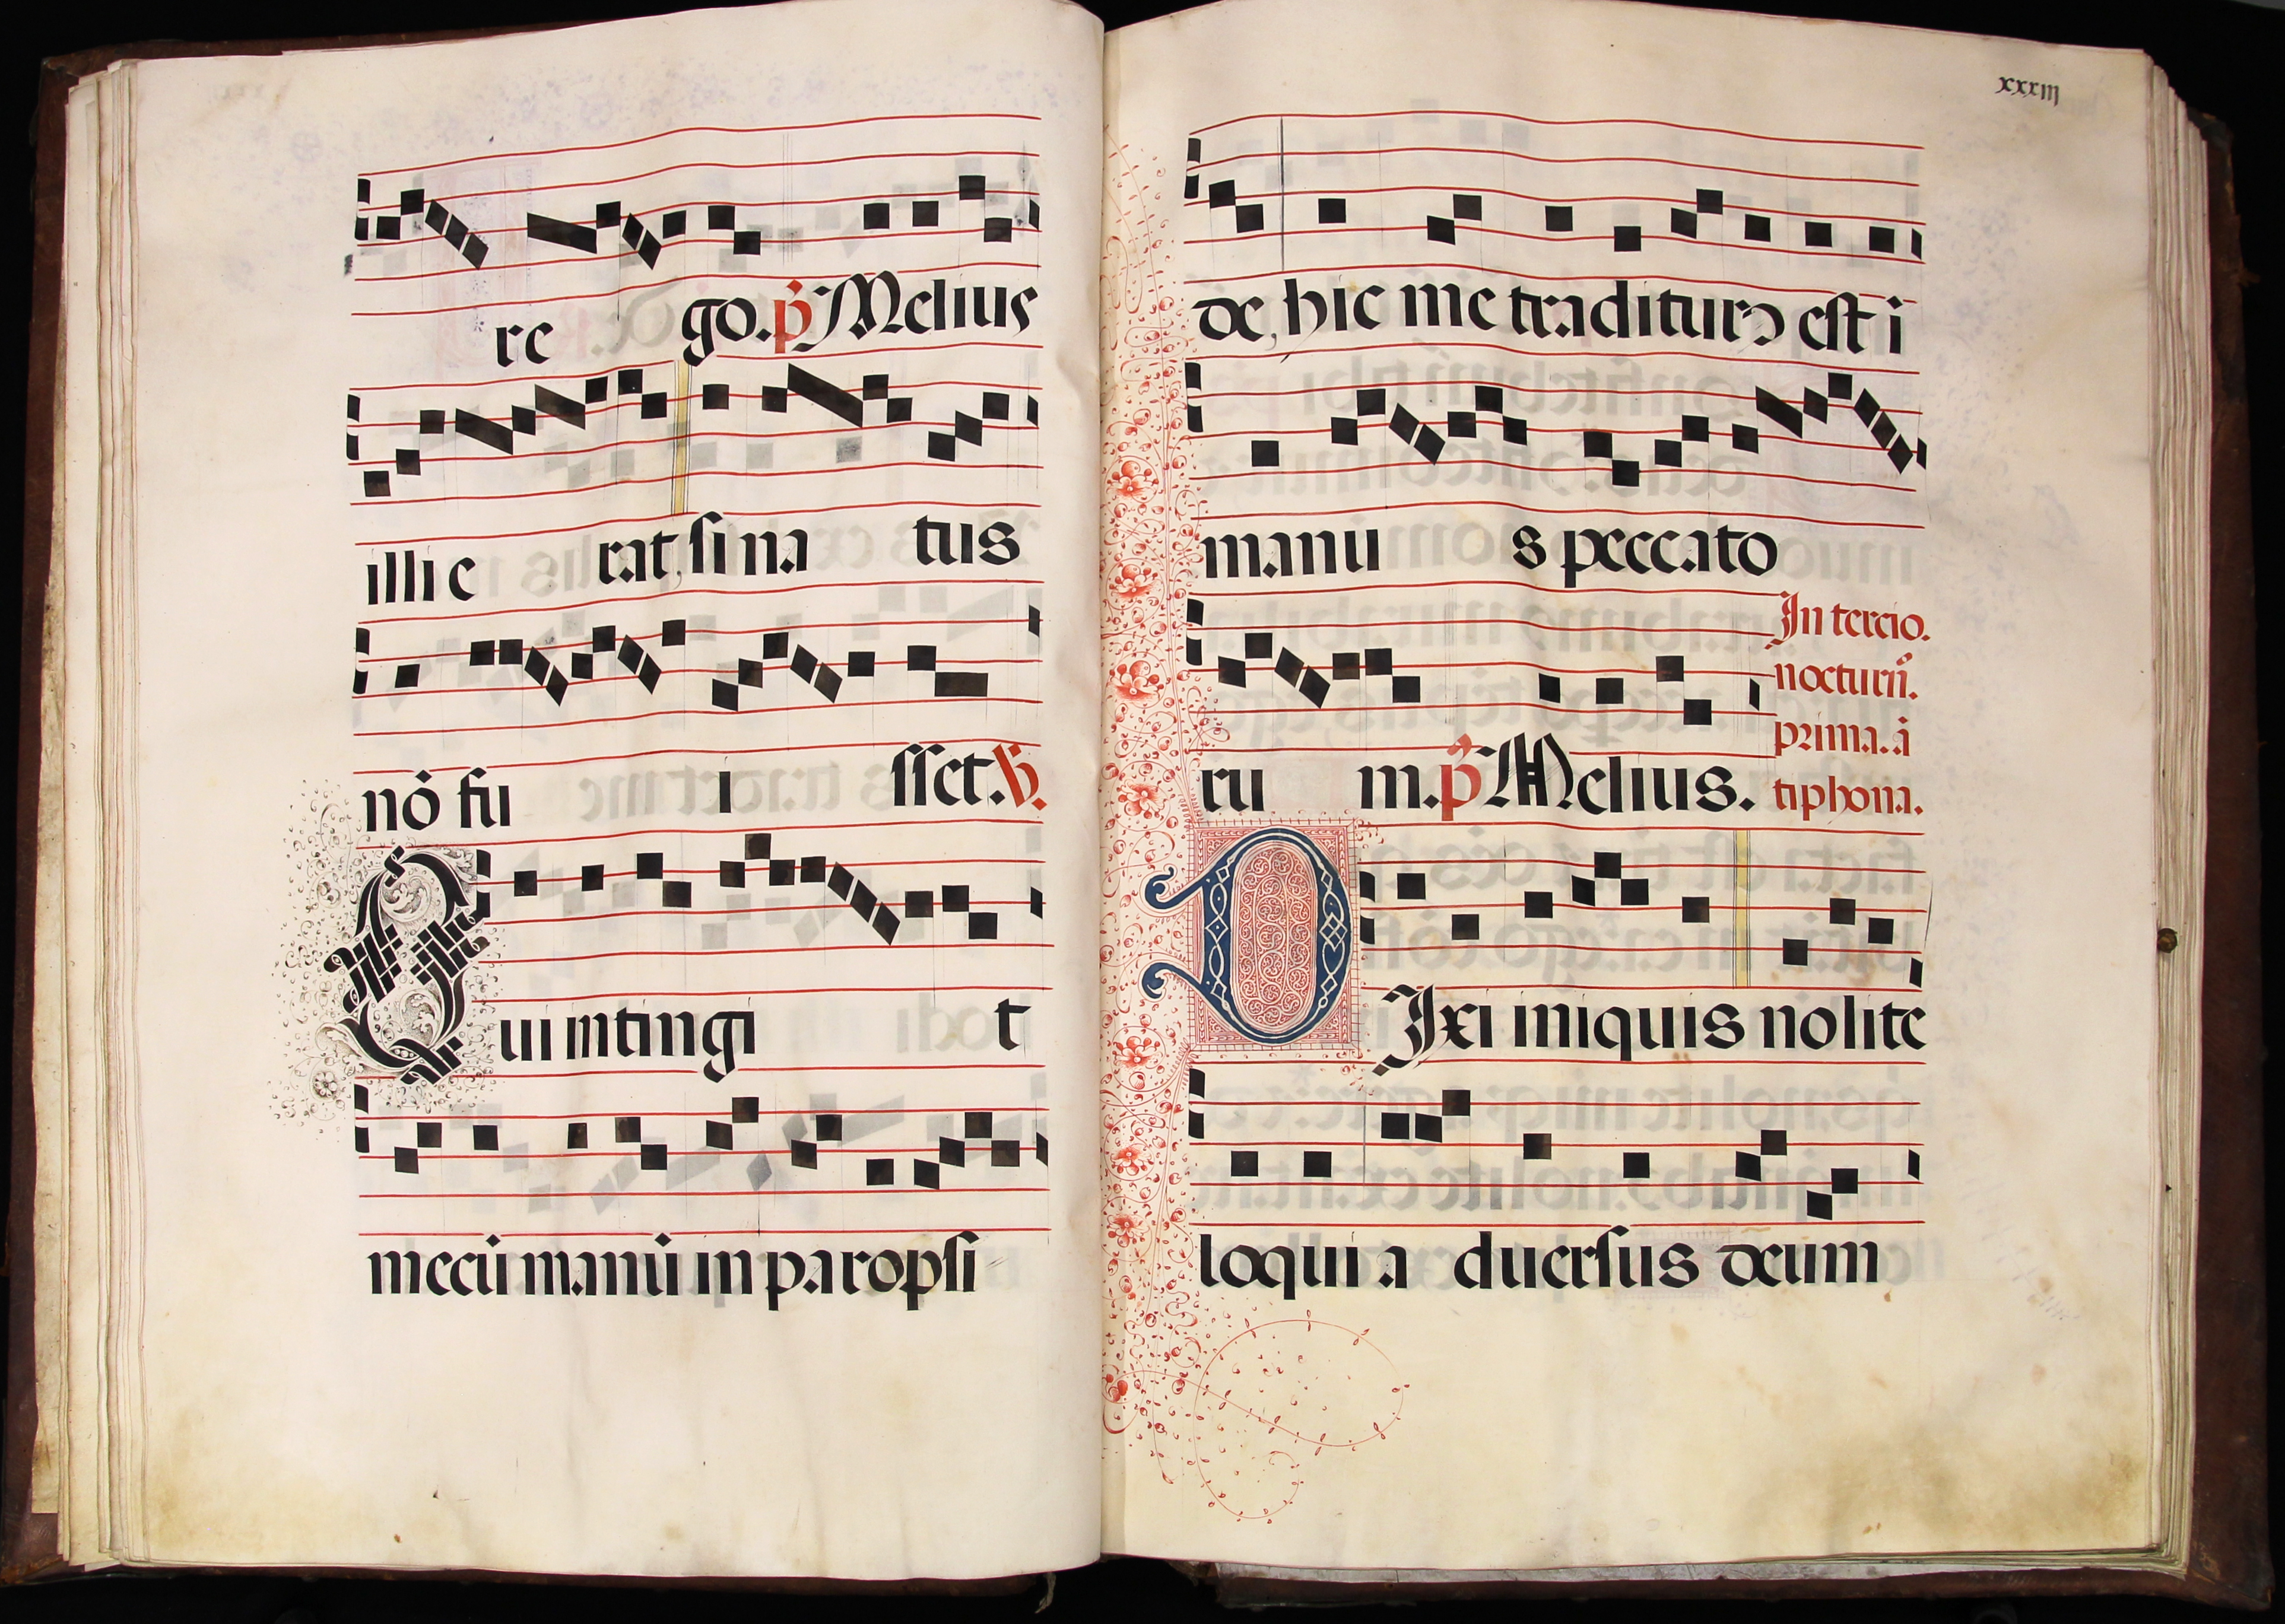 re go. p̃ Melius
illi e rat, si na tus
nō fu i sset. ℣.
Qui intingi t
mecū manū in paropsi
xxxiij
de, hic me traditurꝰ est ī
manu s peccato
In tercio.
nocturñ.
ru m. p̃ Melius.
prima. ā
tiphona.
DIxi iniquis nolite
loqui a duersus deum